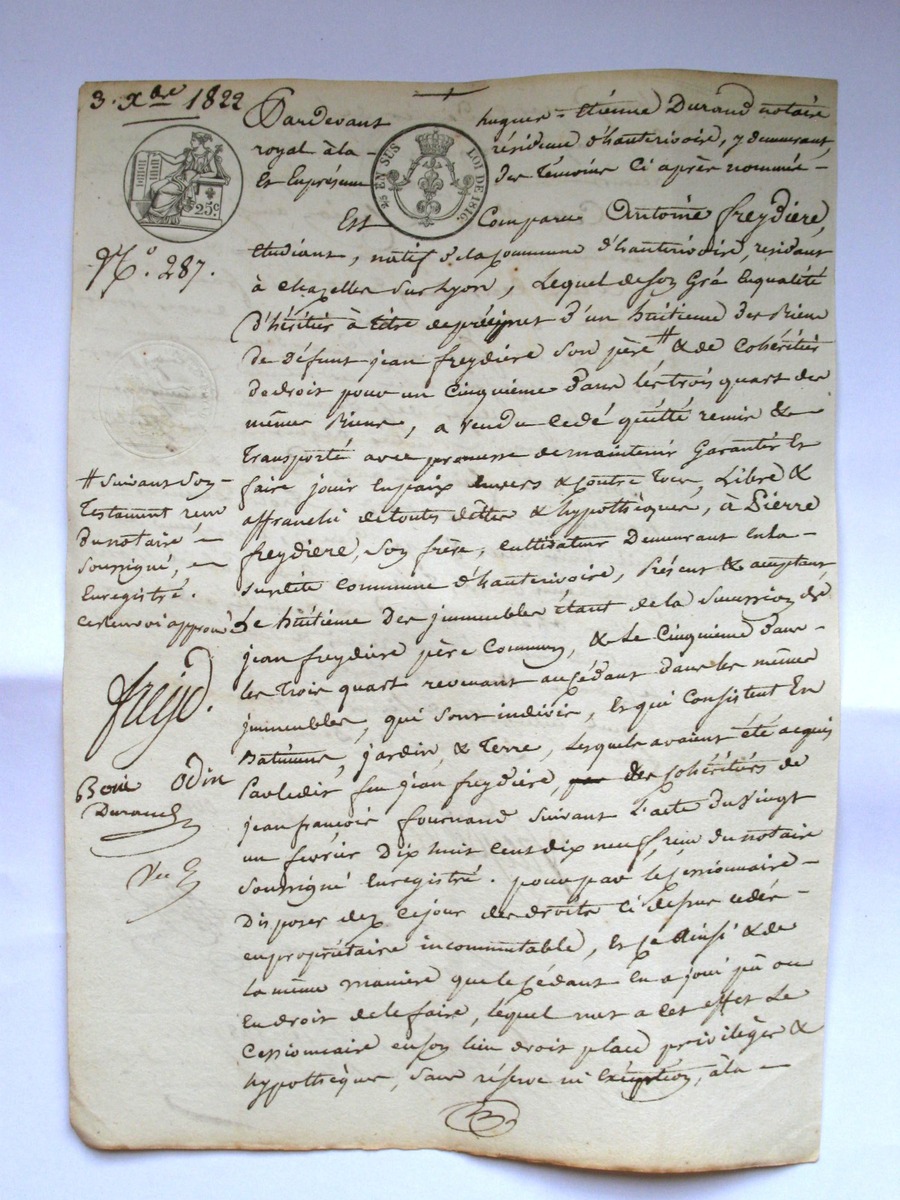 3. Xbre 1822
Pardevant hugues = étienne Durand notaire
royal à la - résidence d'hauterivoire, y demeurant,
Et En présence des Témoins Ci après nommés -
25c
2s EN SUS
LOI DE 1816.
Est Comparu Antoine freydière,
N.° 287.
Etudiant, natif de la Commune d'hauterivoire, résidant
à Chazelles Sur Lyon, Lequel de son Gré En qualité
d'héritier à titre de préciput d'un huitième des Biens
de défunt jean freydière son père # & de Cohéritier
de droit pour un Cinquième dans les trois quart des
mêmes Biens, a vendu Cédé quitté remis &
Transporté avec promesse de maintenir Garantir Et
faire jouir En paix Envers & Contre Tous, Libre &
affranchi de toutes dettes & hypothèques, à Pierre
freydière, son frère, Cultivateur Demeurant En la -
susdite Commune d'hauterivoire, Présent & acceptant
Le huitième Des immeubles Etant de la Succession de
jean freydière père Commun, & Le Cinquième dans -
les Trois quart revenant au Cédant Dans les mêmes
immeubles, qui sont indivis, Et qui Consistent En
Batimens, jardin, & Terre, Lesquels avaient été acquis
Par Ledit feu jean freydière, des Cohéritiers de
jean françois fournand Suivant L'acte du Vingt
un février Dix huit Cent dix neuf reçu du notaire
Soussigné Enregistré. pour par le Cessionnaire -
Disposer dez Ce jour des droits Ci dessus cédés -
en propriétaire incommutable, Et Ce Ainsi & de
la même manière que le Cédant En a joui pû ou
En droit de le faire, lequel met a Cet effet Le
Cessionnaire en son lieu droit place privilèges &
hypothèques, Sans réserve ni Exception, à la -
# Suivant Son -
Testament reçu
Du notaire -
Soussigné,
Enregistré.
ce renvoi approuvé
freyd.
Odin
Durand